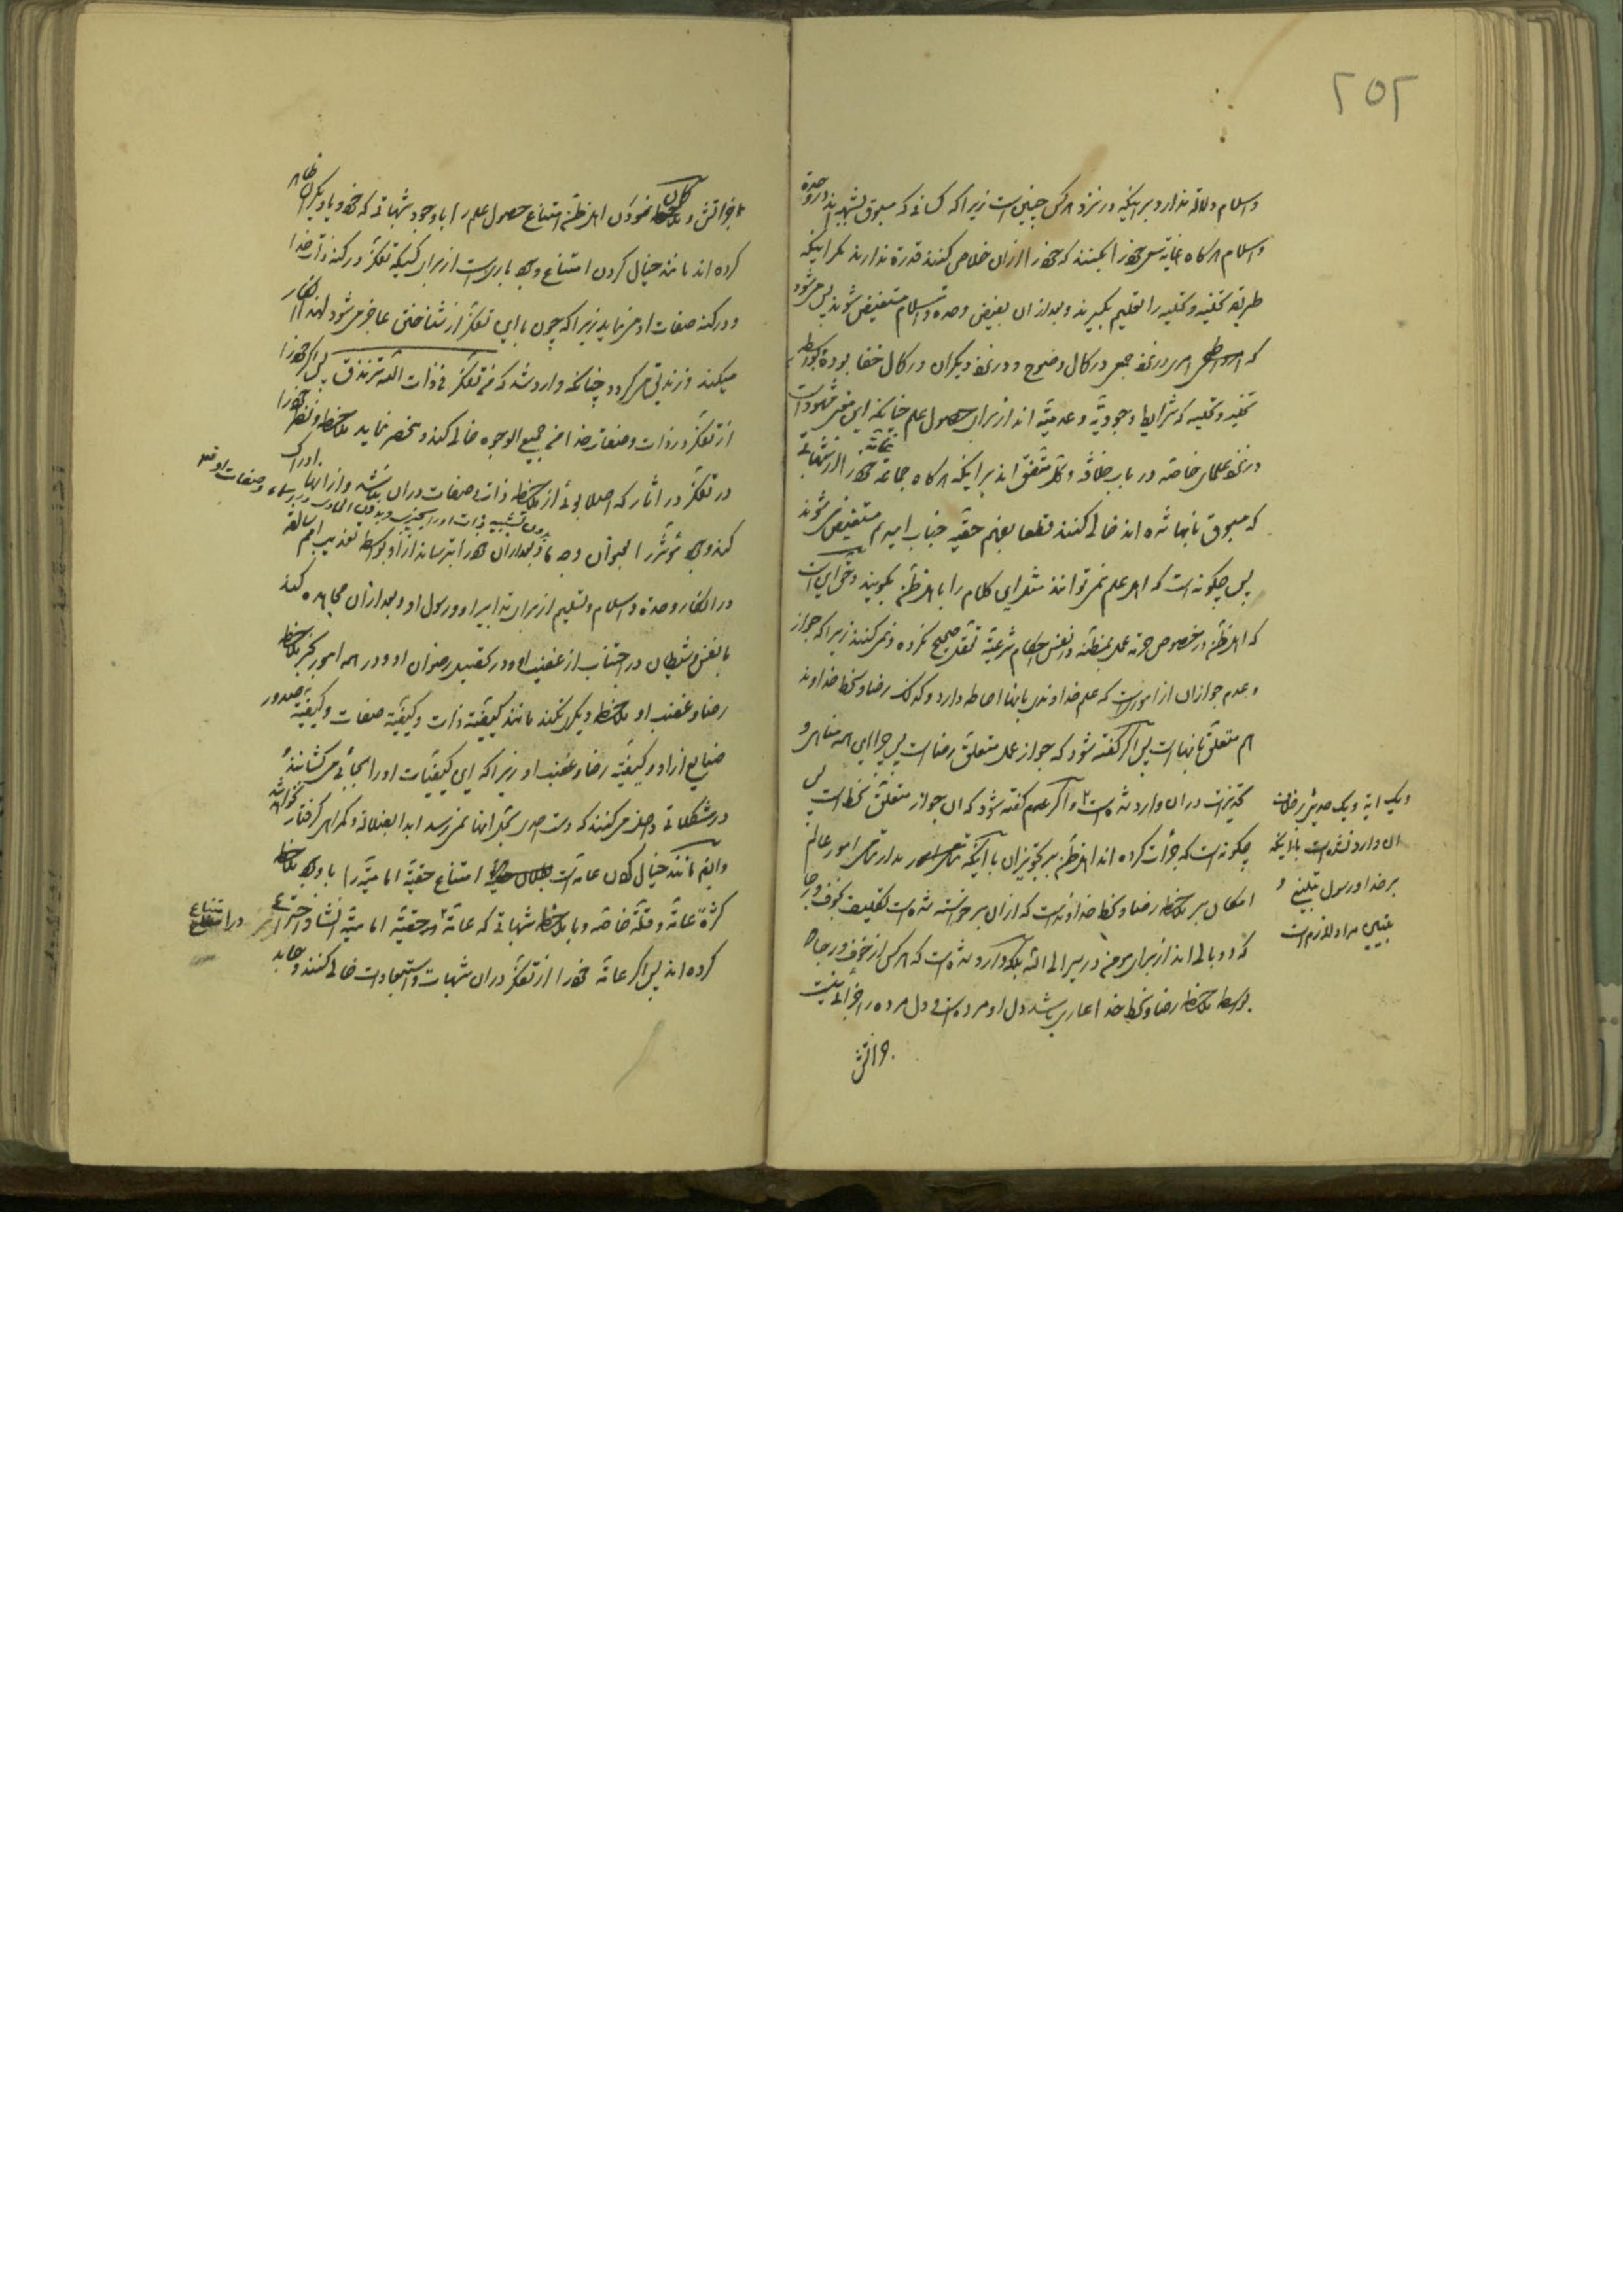 ۲۵۲
و اسلام دلالة ندارد بر اینکه در نزد هر کس چنین است زیرا که کسانی که مسبوق بشبهه اند در وحدة
و اسلام هرگاه غایة سعی خود را بکنند که خود را از ان خلاص کنند قدرة ندارند مگر اینکه
طریقه تخلیه و تحلیه را تعلیم بگیرند و بعد از ان بفیض وحدة و اسلام مستفیض شوند پس می شود
که امری در نزد جمعی در کمال وضوح و در نزد دیگران در کمال خفا بوده بواسطه
تخلیه و تحلیه که شرایط وجودیة و عدمیة اند از برای حصول علم چنانکه این معنی مشهود است
در نزد علمای خاصه در باب خلافة و کل متفق اند بر اینکه هرگاه جماعة عامة خود را از شبهاتی
که مسبوق بانها شده اند خالی کنند قطعا بفهم حقیة جناب امیر ع مستفیض می شوند
پس چگونه است که اهل علم نمی توانند مثل این کلام را با اهل ظن بگویند و حق این است
که اهل ظن در خصوص حرمة عمل بمظنه در نفس احکام شرعیة تعقل صحیح نکرده و نمی کنند زیرا که جواز
و عدم جواز ان از اموریست که علم خداوندی بانها احاطه دارد و کذلک رضا و سخط خداوند
هم متعلق بانها است پس اگر گفته شود که جواز عمل متعلق رضا است پس چرا این همه مناهی و
تحذیرات در ان وارد شده است و اگر گفته شود که ان جواز متعلق سخط است پس
چگونه است که جرأت کرده اند اهل ظن بر تجویز ان با اینکه مدار تمامی امور عالم
امکان بر ملاحظه رضا و سخط خداوند است که از ان برخواسته شده است تکلیف بخوف و رجا
که دو بال اند از برای مومن در سیر الی الله بلکه وارد شده است که هر کس از خوف و رجا
بواسطه ملاحظه رضا و سخط خدا عاری باشد دل او مرده است و دل مرده را جزائی نیست
و یک ایة و یک حدیث بر خلاف
ان وارد نشده است با اینکه
بر خدا و رسول تبلیغ و
تبیین مراد لازم است
جز اتش
جز اتش و گمان نمودن اهل ظن امتناع حصول علم را با وجود شبهاتی که خود یا دیگران
کرده اند مانند خیال کردن امتناع وجود باری است از برای کسیکه تفکر در کنه ذات خدا
و در کنه صفات او می نماید زیرا که چون با این تفکر از شناختن عاجز می شود لهذا انکار
میکند و زندیق می گردد چنانکه وارد شده که من تفکر فی ذات الله تزندق پس اگر خود را
از تفکر در ذات و صفات خدا من جمیع الوجوه خالی کند و منحصر نماید ملاحظه و نظر خود را
در تفکر در اثار که اصلا بوئی از ملاحظه ذات و صفات در ان نباشد و از انها ادراک
کند وجود مؤثر را بعنوان وجه ما و بعد از ان خود را بترساند از او بواسطه تعذیب امم سالفه
در انکار وحدة و اسلام و تسلیم از برای تدابیر او و رسول او و بعد از ان مجاهده کند
با نفس و شیطان در اجتناب از غضب او و در تحصیل رضوان او و در همه امور بجز ملاحظه
رضا و غضب او ملاحظه دیگر نکند مانند کیفیة ذات و کیفیة صفات و کیفیة صدور
صنایع از او و کیفیة رضا و غضب او زیرا که این کیفیات او را بجائی می کشانند و
در مشکلاتی داخل می کنند که دست احدی بحل انها نمی رسد ابدا بضلالة و گمراهی گرفتار نخواهد شد
و ایضا مانند خیال کردن عامه است امتناع حقیة امامیة را با وجود ملاحظه
کثرة عامة و قلة خاصه و با ملاحظه شبهاتی که عامة در حقیة امامیة انشا و اختراع
کرده اند پس اگر عامة خود را از تفکر در ان شبهات و استبعادات خالی کنند و مجاهده
در امتناع